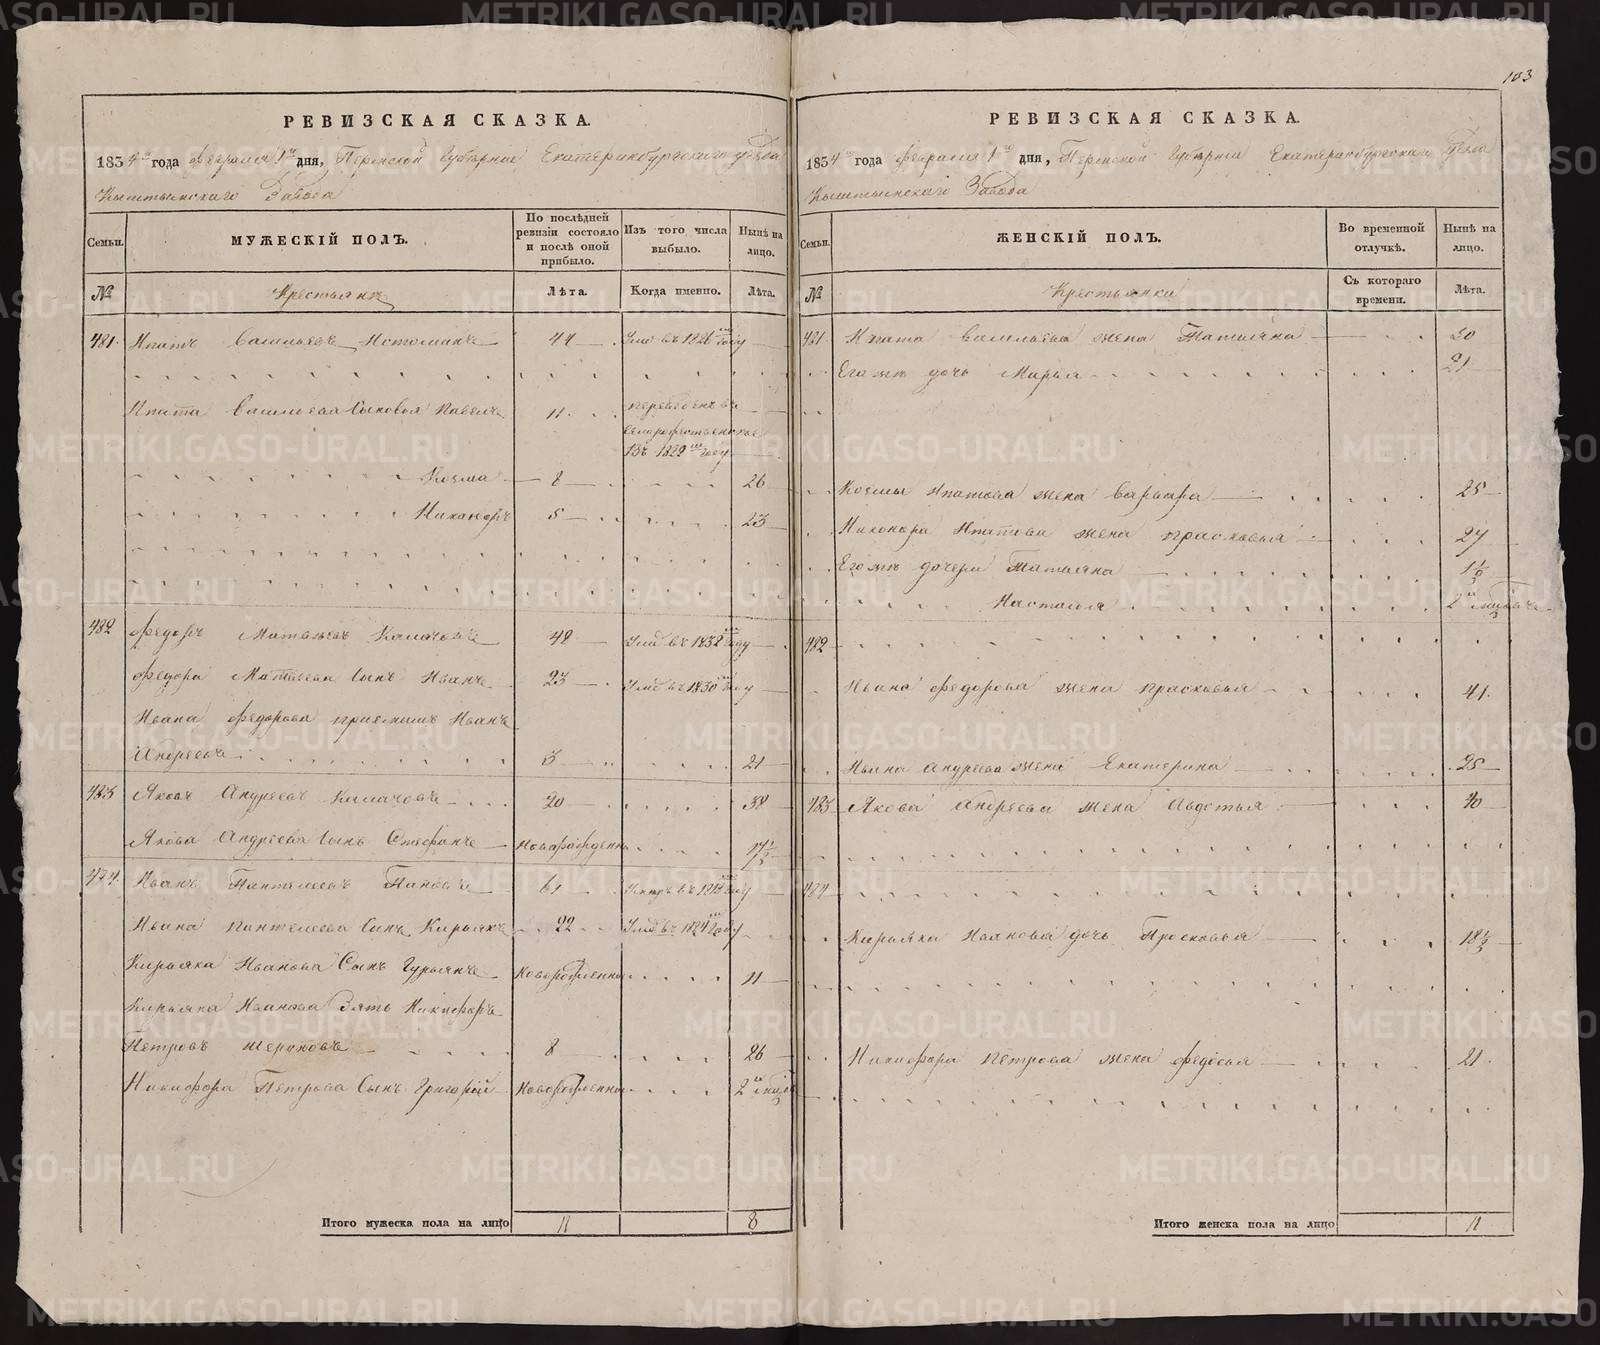 103
РЕВИЗСКАЯ СКАЗКА.
1834 года февраля 1 дня, Пермской Губернии Екатеринбургского уезда
Кыштымскаго Завода
Семьи.
МУЖЕСКІЙ ПОЛЪ.
По послѣдней ревизіи состояло и послѣ оной прибыло.
Изъ того числа выбыло.
Нынѣ на лицо.
№
Крестьяне
Лѣта.
Когда именно.
Лѣта.
481. Ипатъ Васильевъ Истоминъ 44 Умѣ въ 1826 году
Ипата Васильева Сыновья Павелъ 11 переведенъ въ
Въ 1829 году
Козма 8 26
Никаноръ 5 23
482 Федоръ Матвеевъ Калачовъ 48 Умѣ въ 1832 году
Федора Матвеева Сынъ Иванъ 23 Умѣ въ 1830 году
Ивана Федорова приемышъ Иванъ
Андреевъ 3 21
483 Яковъ Андреевъ Калачовъ 20 38
Якова Андреева Сынъ Стефанъ Новорожденъ
484 Иванъ Пантелеевъ Паповъ 61 году
Ивана Пантелеева Сынъ Кирьякъ 22 Умѣ въ 1824 году
Кирьяка Иванова Сынъ Гурьянъ Новорожденъ 11
Кирьяка Иванова Зять Никифоръ
Петровъ 8 26
Никифора Петрова Сынъ Григорій Новорожденъ 2
Итого мужеска пола на лицо 11 8
РЕВИЗСКАЯ СКАЗКА.
1834 года февраля 1 дня, Пермской Губерніи Екатеринбургскаго уезда
Кыштымскаго Завода
Семьи.
ЖЕНСКІЙ ПОЛЪ.
Во временной отлучкѣ.
Нынѣ на лицо.
№
Крестьянки
Съ котораго времени.
Лѣта.
481 Ипата Васильева жена Татьяна 50
Его жъ дочь Марья 21
Козмы Ипатова жена Варвара 25
Никонора Ипатова жена Прасковья 27
Его жъ дочери Татьяна
Настасья 2
482
Ивана Федорова жена Прасковья 41
Ивана Андреева жена Екатерина 25
483 Якова Андреева жена Авдотья 40
484
Кирьяка Иванова дочь Просковья
Никифора Петрова жена Федосья 21
Итого женска пола на лицо 11
METRIKI.GASO-URAL.RU